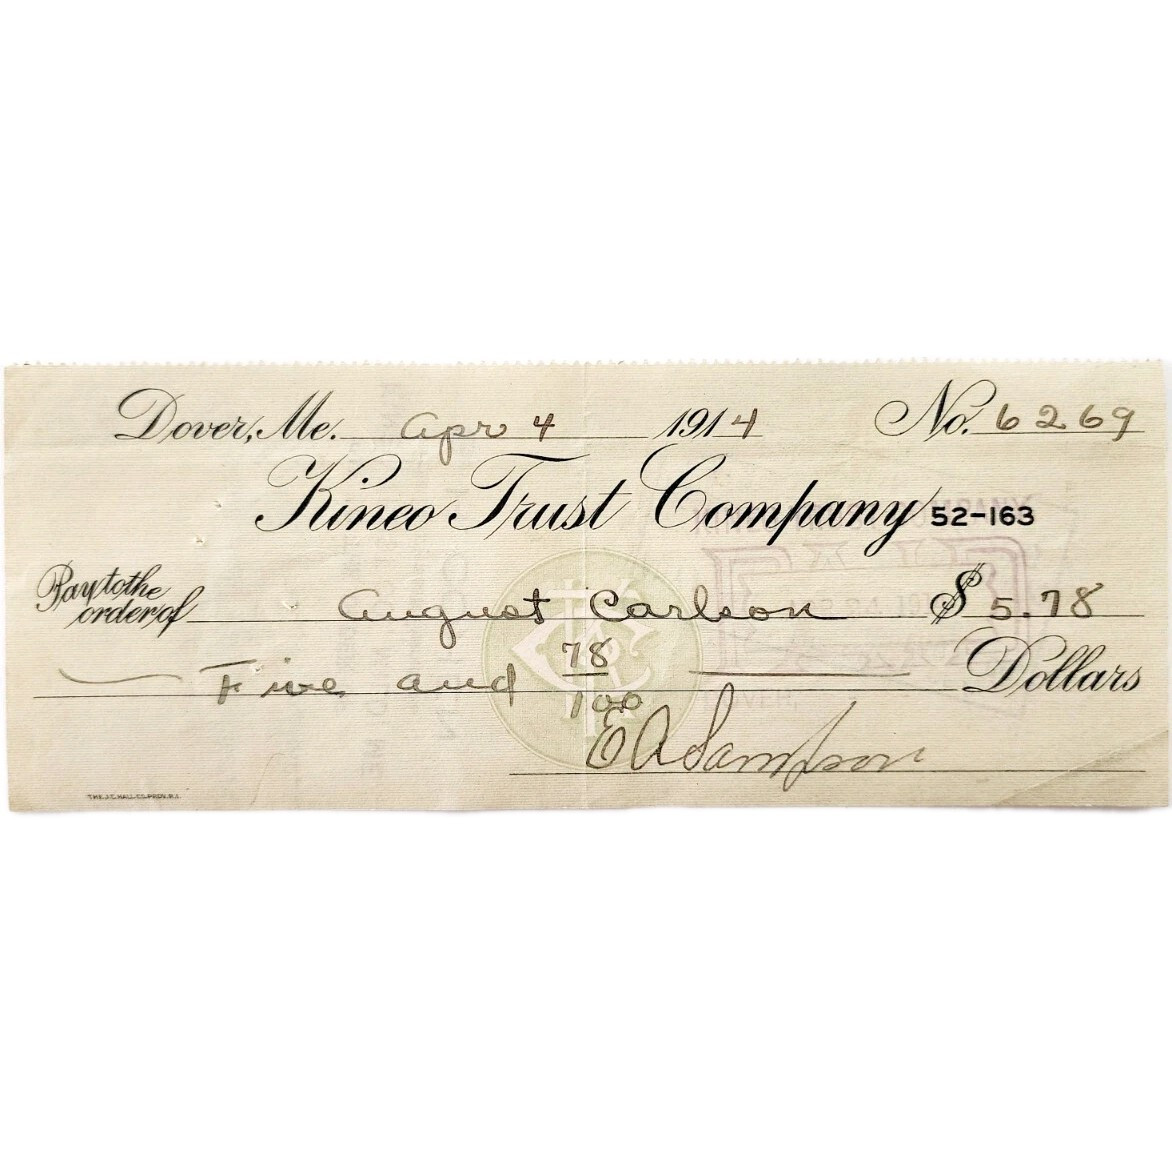 Dover, Me. Apr 4 1914 No. 6269
Kineo Trust Company 52-163
Pay to the order of August Carlson $ 5.78
Five and 78/100 Dollars
E A Sampson
THE J.C. HALL CO. PROV. R.I.